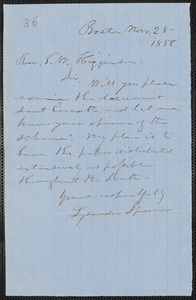 36
Boston Nov. 28 -
1858
Rev. T. W. Higginson
Sir,
Will you please
examine the document
sent herewith, and let me
know your opinion of the
scheme? My plan is to
have the paper distributed
extensively as possible
throughout the South.
Yours respectfully
Lysander Spooner